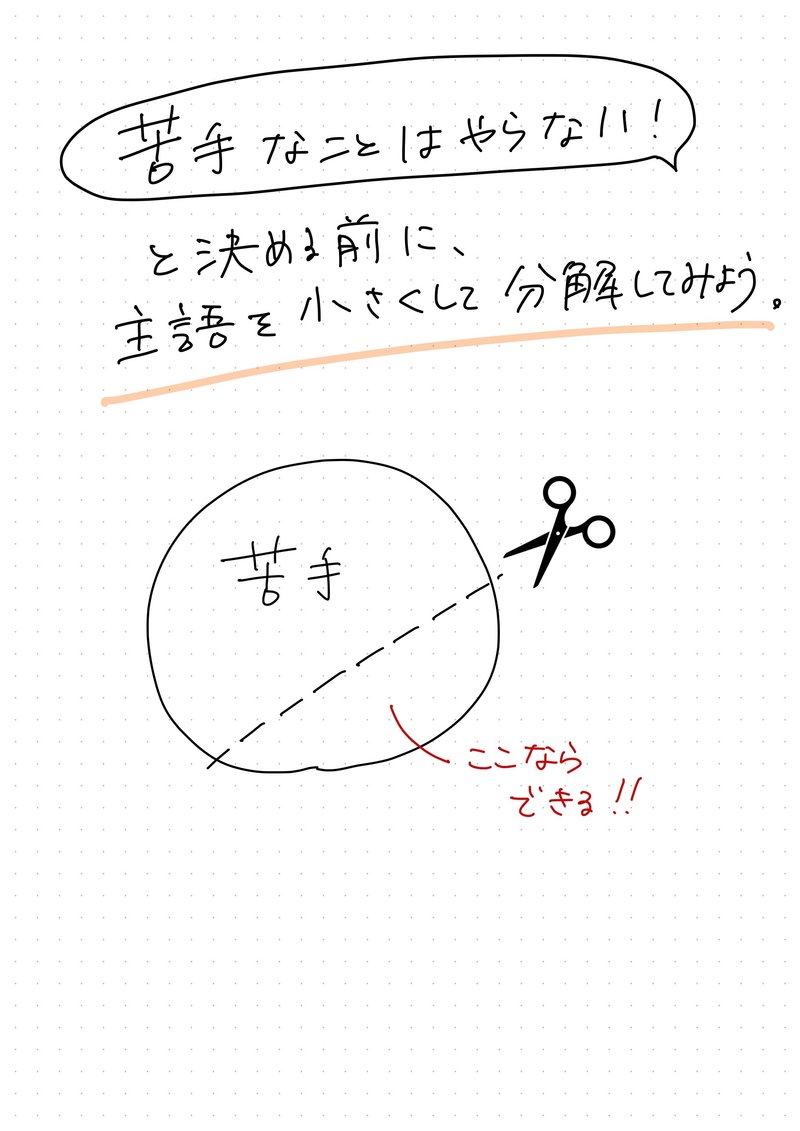 苦手なことはやらない!
と決める前に、
主語を小さくして分解してみよう。
苦手
ここなら
できる!!